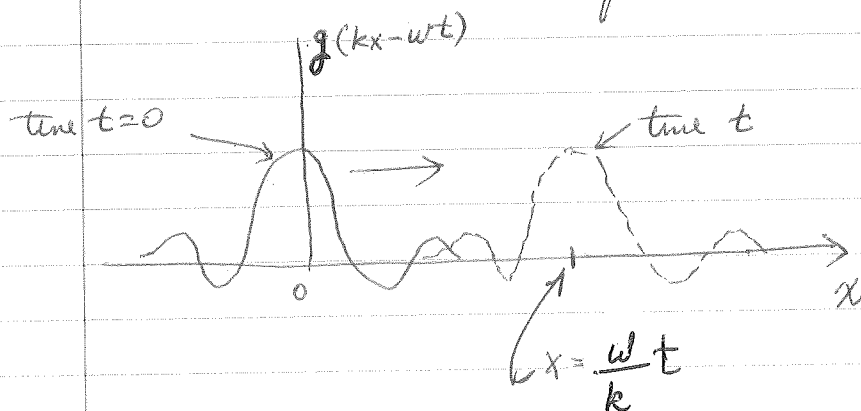 g(kx-wt)
time t=0
time t
0
x
x = w/k t